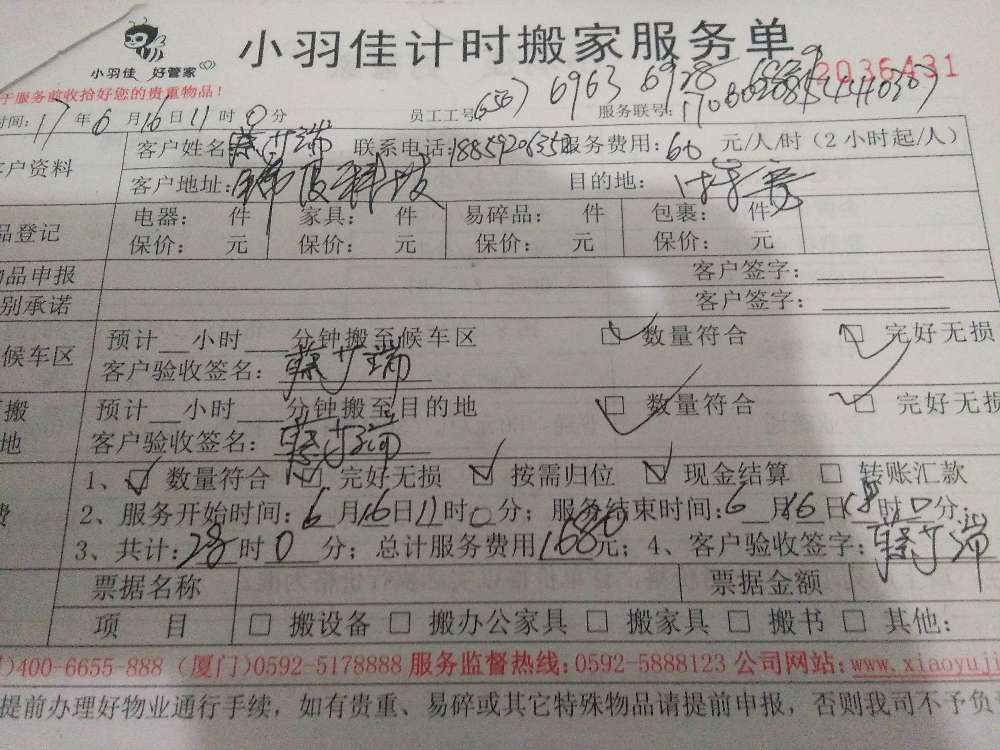 小羽佳计时搬家服务单
小羽佳 好管家
2036431
服务前收拾好您的贵重物品！
时间：17年6月16日11时0分 员工工号 6963 6928 服务联号：
客户资料 客户姓名 联系电话： 服务费用：60 元/人/时（2小时起/人）
客户地址： 目的地：
品登记 电器： 件 家具： 件 易碎品： 件 包裹： 件
保价： 元 保价： 元 保价： 元 保价： 元
品申报 客户签字：
别承诺 客户签字：
候车区 预计__小时__分钟搬至候车区 ☑数量符合 ☑完好无损
客户验收签名：
搬 预计__小时__分钟搬至目的地 ☑数量符合 ☑完好无损
地 客户验收签名：
1、☑数量符合 ☑完好无损 ☑按需归位 ☑现金结算 □转账汇款
费 2、服务开始时间：6月16日11时0分；服务结束时间：6月16日18时0分；
3、共计：28时0分；总计服务费用1680元；4、客户验收签字：
票据名称 票据金额
项 目 □搬设备 □搬办公家具 □搬家具 □搬书 □其他：
)400-6655-888（厦门)0592-5178888 服务监督热线：0592-5888123 公司网站：www.xiaoyuji
提前办理好物业通行手续，如有贵重、易碎或其它特殊物品请提前申报，否则我司不予负